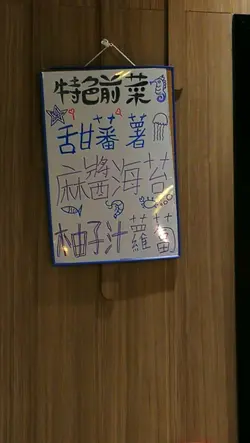 特色前菜
甜蕃薯
麻醬海苔
柚子汁蘿蔔